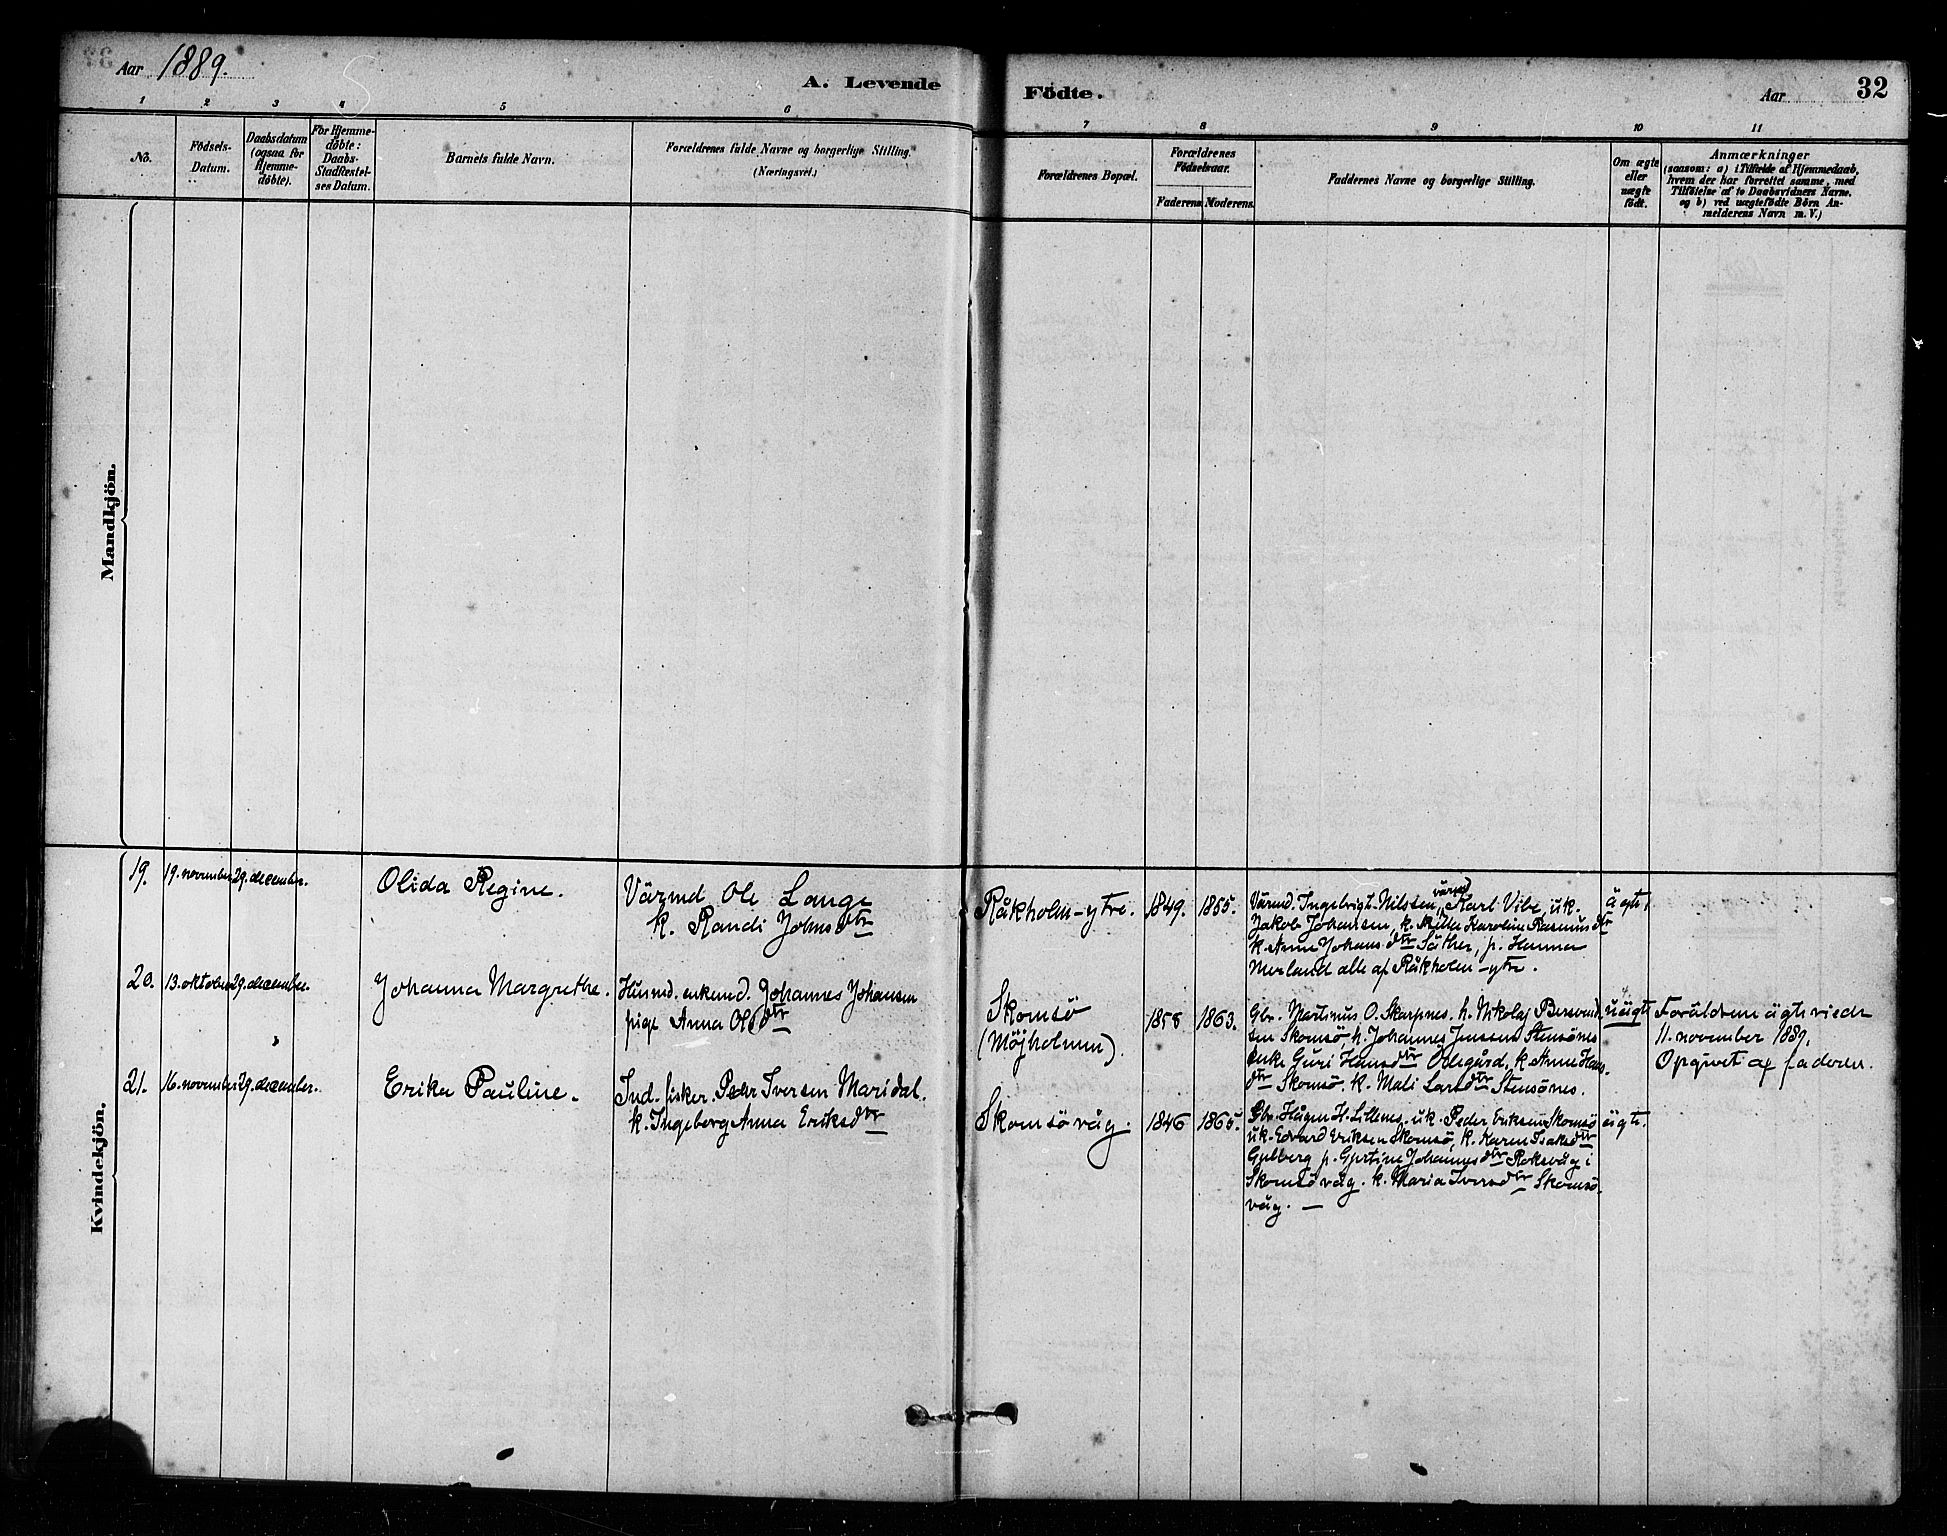 Aar 1889.
A. Levende
Fødte.
Aar
32
1 2 3 4 5 6
7 8 9 10 11
No.
Fødsels-
Datum.
Daabsdatum
(ogsaa for
Hjemme-
døbte).
For Hjemme-
døbte:
Daabs-
Stadfæstel-
ses Datum.
Barnets fulde Navn.
Forældrenes fulde Navne og borgerlige Stilling.
(Næringsvei.)
Forældrenes Bopæl.
Forældrenes
Fødselsaar.
Faderens. Moderens.
Faddernes Navne og borgerlige Stilling.
Om ægte
eller
uægte
født.
Anmærkninger
(saasom: a) i Tilfælde af Hjemmedaab,
hvem der har forrettet samme, med
Tilføielse af to Daabsvidners Navne.
og b) ved uægtefødte Børn An-
melderens Navn m. V.)
Mandkjön.
Kvindekjön.
19. 19. november 29. december.
Olida Regine.
Värmd Ole Lange
k. Randi Johnsdtr
Råkholm-ytre. 1849. 1855.
Värmd. Ingebrigt Nilssen, värmd Karl Vibe, uk.
Jakob Johansen, k. Milla Karoline Rasmusdtr
k. Anne Johansdtr Säther, p. Hanna
Merland alle af Råkholm-ytre.
ägte,
20. 13. oktober 29. december.
Johanna Margrethe.
Husmd. enkemd. Johannes Johansen
pige Anna Olsdtr
Skomsö
(Möjholmen). 1858 1863.
Gbr. Martinus O. Skarpnes. h. Nikolaj Bersvend-
sen Skomsö, h. Johannes Jenssen Stensönes
enke Guri Hansdtr Ödegård, k. Anne Hans-
dtr Skomsö. k. Mali Larsdtr Stensönes.
uägte
Foräldrene ägteviede
11. november 1889.
Opgivet af faderen.
21. 16. november 29. december.
Erika Pauline.
Ind. fisker. Peder Iversen Maridal.
k. Ingeborg Anna Eriksdtr
Skomsövåg. 1846 1865.
Gbr. Hågen H. Lillenes. uk. Peder Eriksen Skomsö
uk. Edvard Eriksen Skomsö, k. Karen Isaksdtr
Gulberg p. Gjertine Johannesdtr Roksvåg i
Skomsövåg. k. Maria Iversdtr Skomsö-
våg. —
ägte.